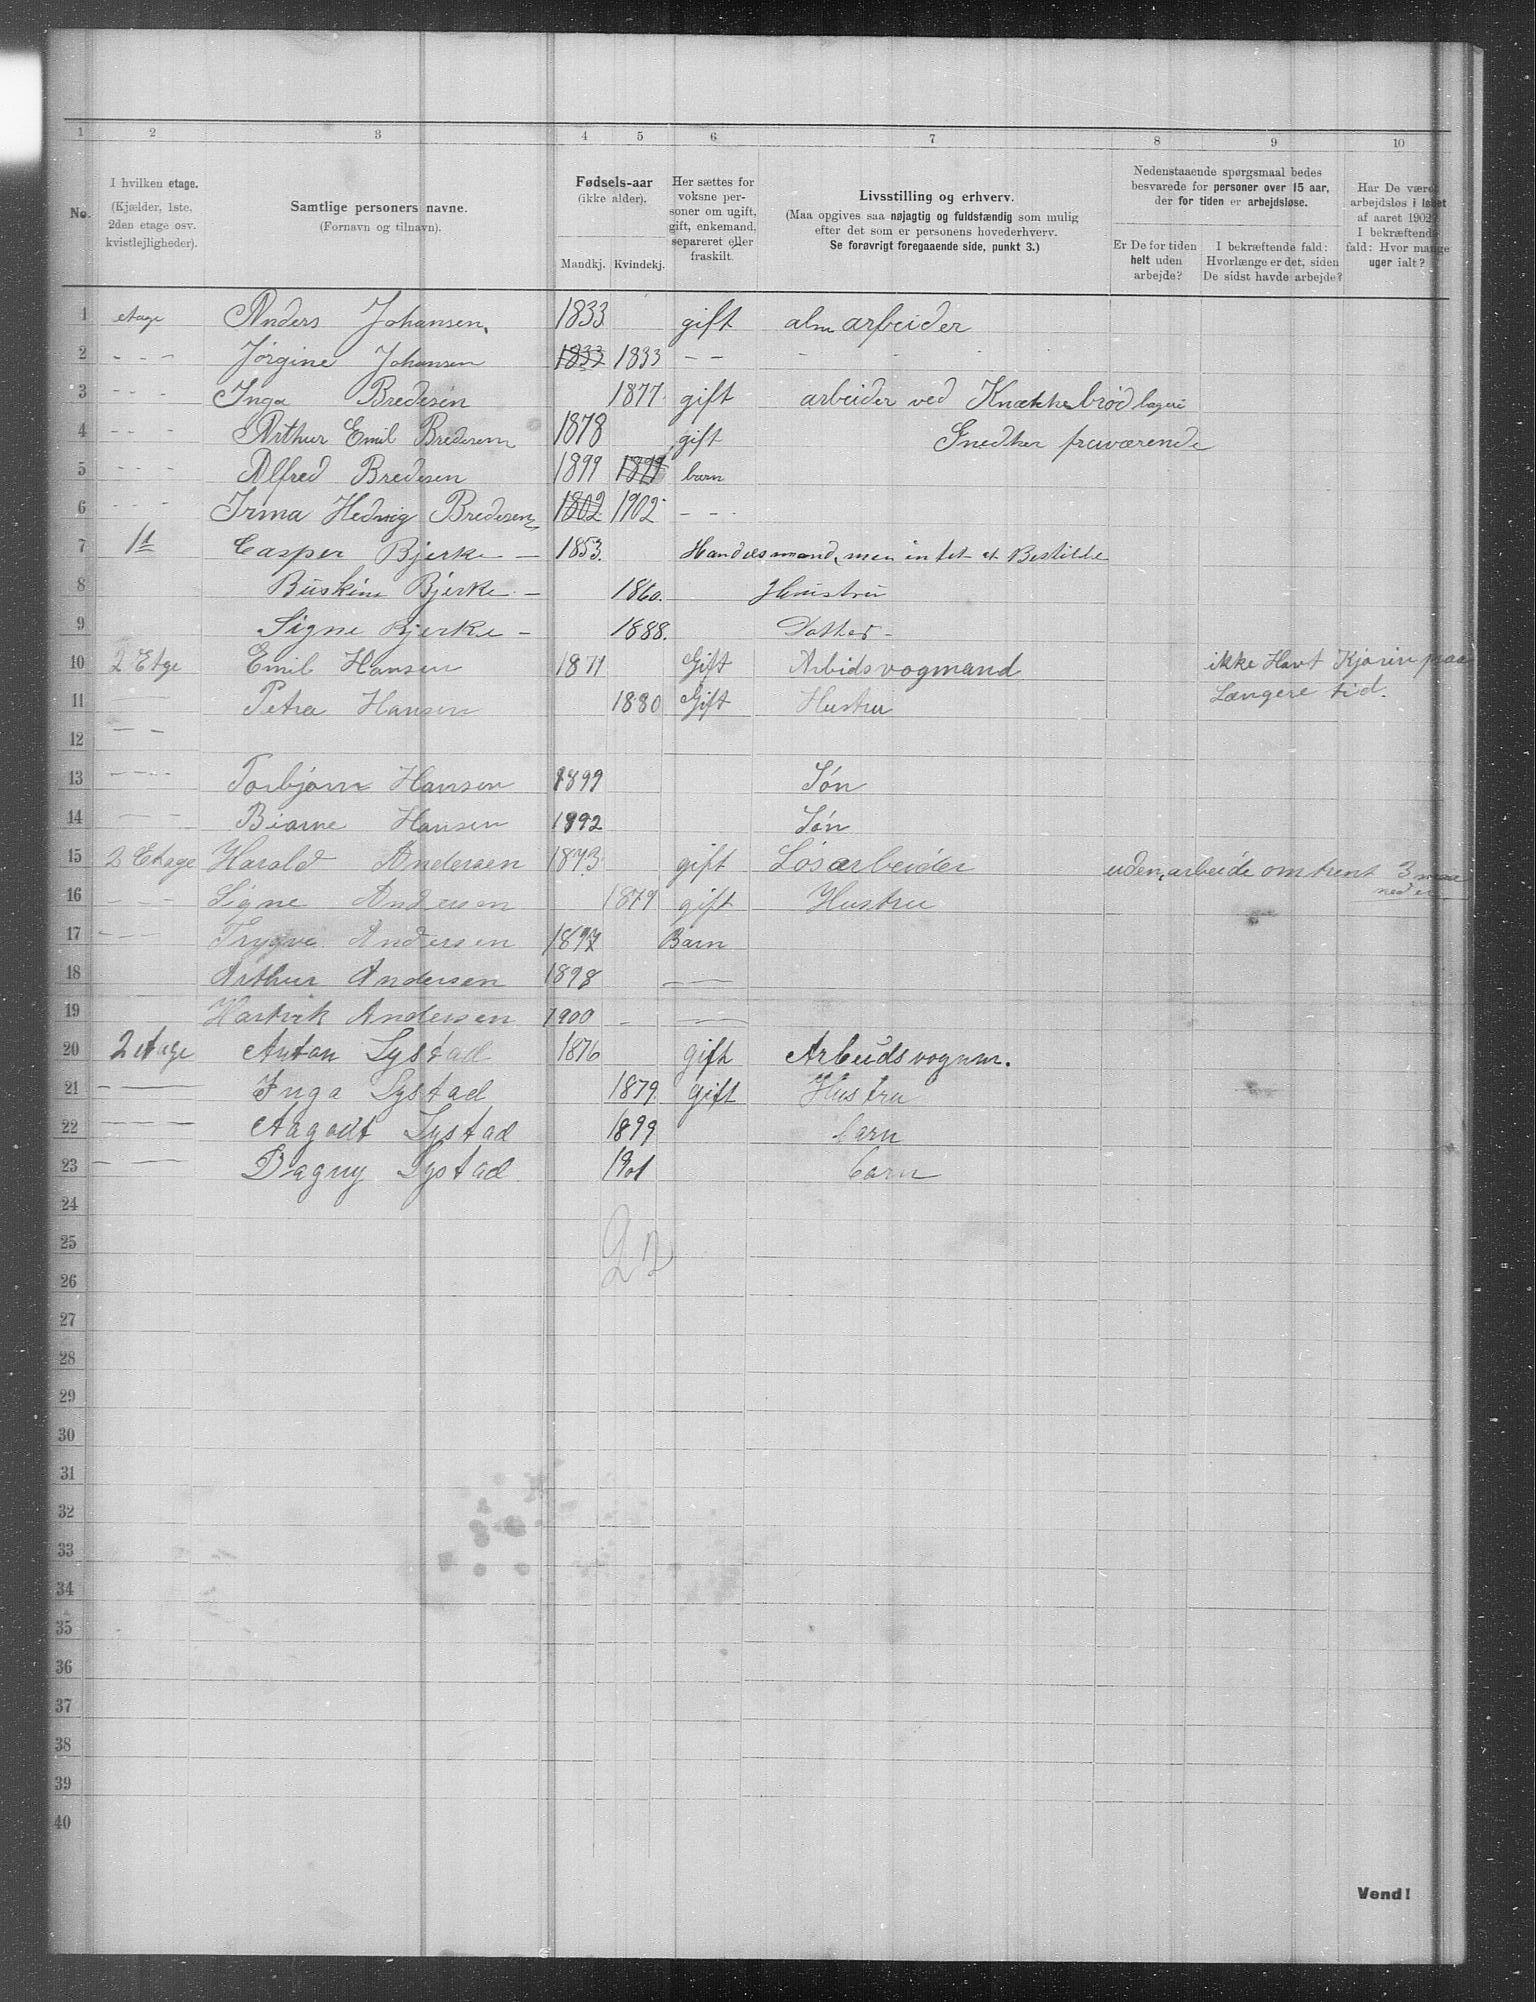 1 2 3 4 5 6 7 8 9 10
No.
I hvilken etage.
(Kjælder, 1ste,
2den etage osv.
kvistlejligheder).
Samtlige personers navne.
(Fornavn og tilnavn).
Fødsels-aar
(ikke alder).
Mandkj. Kvindekj.
Her sættes for
voksne per-
soner om ugift,
gift, enkemand,
separeret eller
fraskilt.
Livsstilling og erhverv.
(Maa opgives saa nøjagtig og fuldstændig som mulig
efter det som er personens hovederhverv.
Se forøvrigt foregaaende side, punkt 3.)
Nedenstaaende spørgsmaal bedes
besvarede for personer over 15 aar,
der for tiden er arbejdsløse.
Er De for tiden
helt uden
arbejde?
I bekræftende fald:
Hvorlænge er det, siden
De sidst havde arbejde?
Har De været
arbejdsløs i løbet
af aaret 1902?
I bekræftende
fald: Hvor mange
uger ialt?
1 etage Anders Johansen, 1833 gift alm arbeider
2 - - - Jørgine Johansen 1833 1833 - -
3 - - - Inga Bredesen 1877 gift arbeider ved Knækkebrød bageri
4 - - - Arthur Emil Bredesen 1878 gift Snedker fraværende
5 - - - Alfred Bredesen 1899 1899 barn
6 - - - Irma Hedvig Bredesen 1802 1902 - - -
7 1st Casper Bjerke - 1853. Handelsmand, men intet at Bestille
8 Bjerke - 1860. Hustru
9 Signe Bjerke - 1888. Datter -
10 2 Etge Emil Hansen 1871 Gift Arbidsvogmand ikke Havt Kjørin paa
11 - - - Petra Hansen 1880 Gift Hustru Længere tid.
12 - - -
13 - - - Torbjørn Hansen 1899 Søn
14 - - - Biarne Hansen 1892 Søn
15 2 Etage Harald Andersen 1873 gift Løsarbeider uden arbeide omtrent 3 maa
neder
16 - - - Signe Andersen 1879 gift Hustru
17 - - - Trygve Andersen 1897 Barn
18 Arthur Andersen 1898 - -
19 Hartvik Andersen 1900 - - -
20 2 etage Anton Lystad 1876 gift Arbeidsvognm.
21 - - - Inga Lystad 1879 gift Hustru
22 - - - Aagodt Lystad 1899 barn
23 - - - Dagny Lystad 1901 barn
24
25 22
26
27
28
29
30
31
32
33
34
35
36
37
38
39
40
Vend!